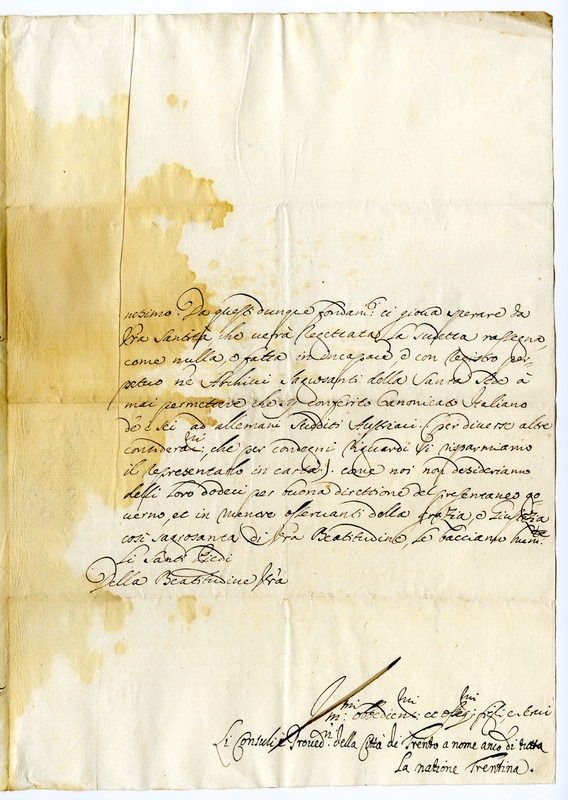 nesimo. Da questi dunque fondam.ti ci giova sperare da
Vra Santità che verrà regettata la sudetta rassegna
come nulla, e fatta in incapace, e con Registro per-
petuo nè Archivi Sagrosanti della Santa Sede à
mai permettere che si conferito Canonicato Italiano
de sei ad Allemani sudditi Austriaci (per diverse altre
considera.ni che per condegni riguardi si risparmiamo
il representarlo in carta) come noi non desideriamo
delli loro dodeci per buona direttione del presentaneo go
verno, et in menove osservanti della grazia, e Giustizia
così sagrosanta di Vra Beatitudine, le bacciamo hum.te
Li Santi Piedi
Della Beatitudine Vra
obedien.mi et figli e servi
Li Consuli e Proved.ri della Città di Trento a nome anco di tutta
La natione Trentina.